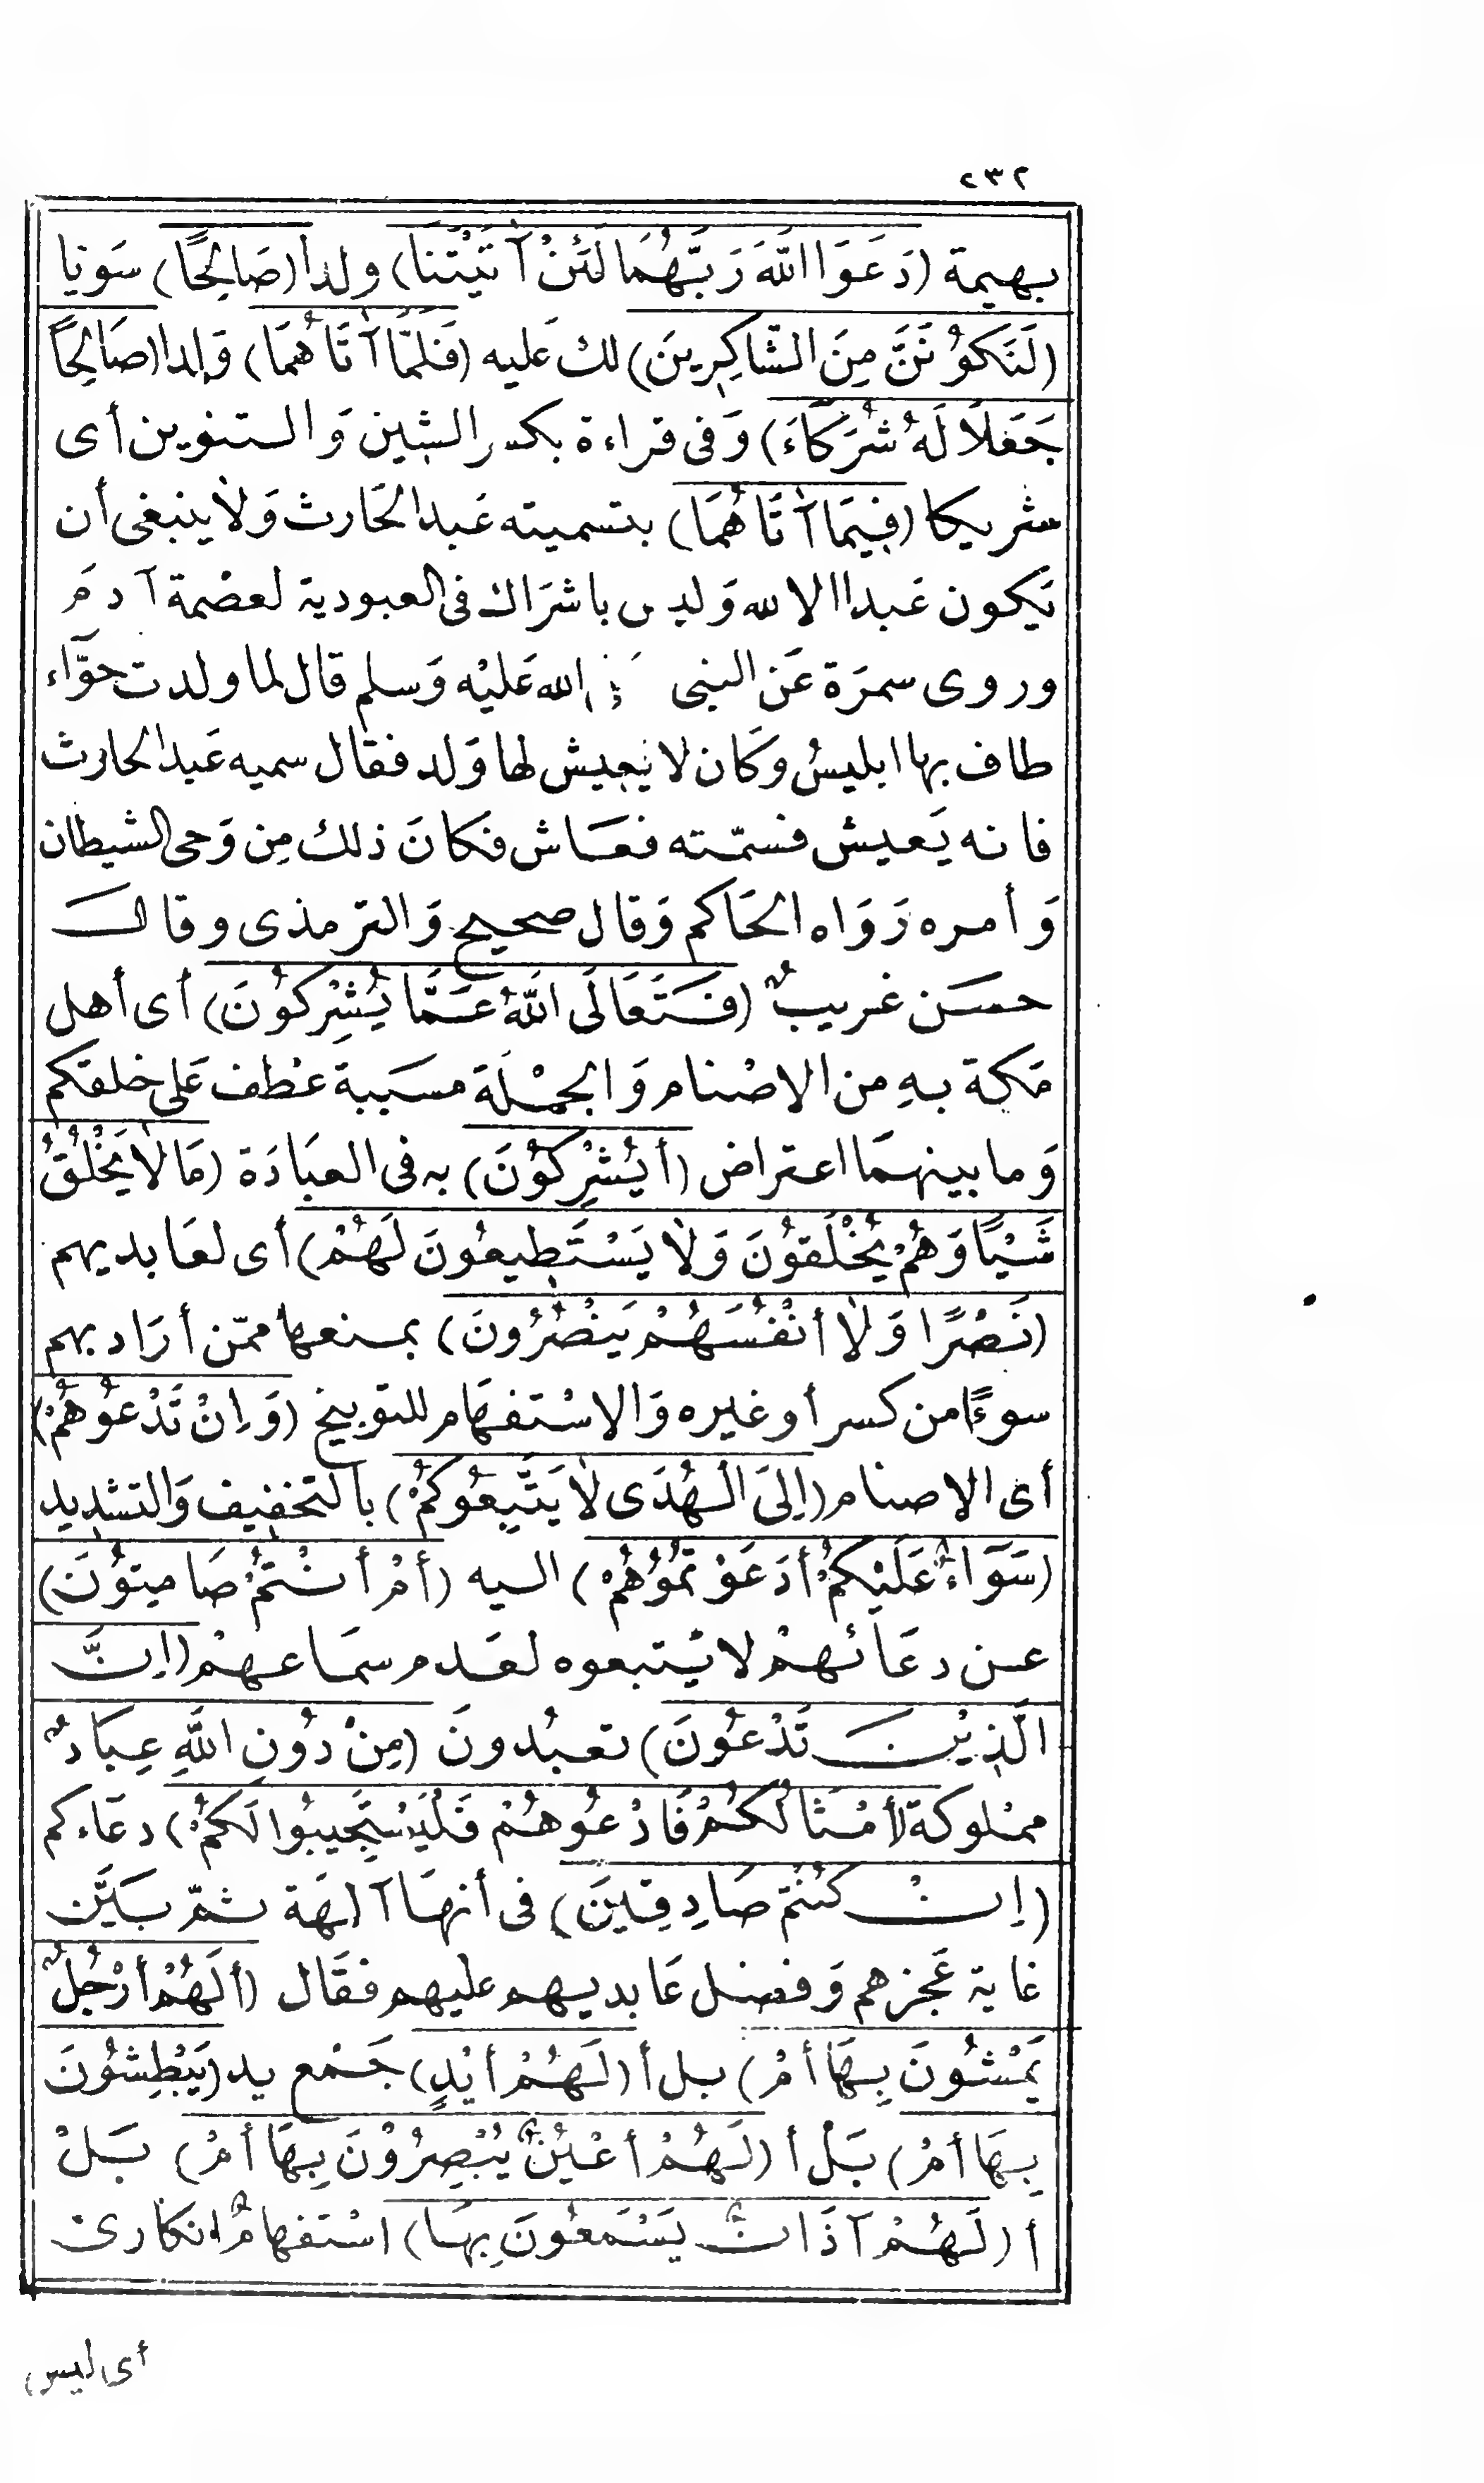 ٢٣٢
بهيمة (دَعَوَا اللَّهَ رَبَّهُمَا لَئِنْ آتَيْتَنَا) ولدا (صَالِحًا) سَويا
(لَنَكُونَنَّ مِنَ الشَّاكِرِينَ) لك عَليه (فَلَمَّا آتَاهُمَا) وَلدا (صَالِحًا
جَعَلَا لَهُ شُرَكَاءَ) وَفى قراءة بكسر الشين وَالتنوين أى
شريكا (فِيمَا آتَاهُمَا) بتسميته عَبد الحَارث وَلا ينبغى أن
يَكون عَبدا الا لله وَليس باشرَاك فى العبودية لعصْمة آدمَ
وروى سمرَة عَن النبى الله عَليْه وَسلم قال لما ولدت حوّاء
طاف بها ابليسُ وكَان لا يَعيش لها وَلد فقال سميه عَبد الحارث
فانه يَعيش فسمّته فعَاش فكانَ ذلك مِن وَحى الشيطان
وَأمره رَوَاه الحَاكم وَقال صحيح وَالترمذى وقال
حسَن غريبٌ (فَتَعَالَى اللَّهُ عَمَّا يُشْرِكُونَ) أى أهل
مَكة بهِ من الاصْنام وَالجمْلَة مسَببة عَطف عَلى خلقكم
وَما بينهمَا اعتراض (أَيُشْرِكُونَ) به فى العبَادَة (مَا لَا يَخْلُقُ
شَيْئًا وَهُمْ يُخْلَقُونَ وَلَا يَسْتَطِيعُونَ لَهُمْ) أى لعَابديهم
(نَصْرًا وَلَا أَنْفُسَهُمْ يَنْصُرُونَ) بمنعها ممّن أرَاد بهم
سوءًا من كسر أو غيره وَالاسْتفهَام للتوبيخ (وَإِنْ تَدْعُوهُمْ)
أى الاصنام (إِلَى الْهُدَى لَا يَتَّبِعُوكُمْ) بالتخفيف وَالتشديد
(سَوَآءٌ عَلَيْكُمْ أَدَعَوْتُمُوهُمْ) اليه (أَمْ أَنْتُمْ صَامِتُونَ)
عن دعَائهمْ لا يتبعوه لعَدم سمَاعهمْ (إِنَّ
الَّذِيْنَ تَدْعُونَ) تعبُدونَ (مِنْ دُونِ اللَّهِ عِبَادٌ
ممْلوكة (أَمْثَالُكُمْ فَادْعُوهُمْ فَلْيَسْتَجِيبُوا لَكُمْ) دعَاءكم
(إِنْ كُنْتُمْ صَادِقِينَ) فى أنهَا آلهَة ثمّ بَيَّن
غاية عَجزهم وَفضل عَابديهم عليهم فقَال (أَلَهُمْ أَرْجُلٌ
يَمْشُونَ بِهَا أَمْ) بل أ (لَهُمْ أَيْدٍ) جَمْع يد (يَبْطِشُونَ
بِهَا أَمْ) بَلْ أ (لَهُمْ أَعْيُنٌ يُبْصِرُوْنَ بِهَا أَمْ) بَلْ
أ (لَهُمْ آذَانٌ يَسْمَعُونَ بِهَا) اسْتفهامٌ انكارى
أى ليس